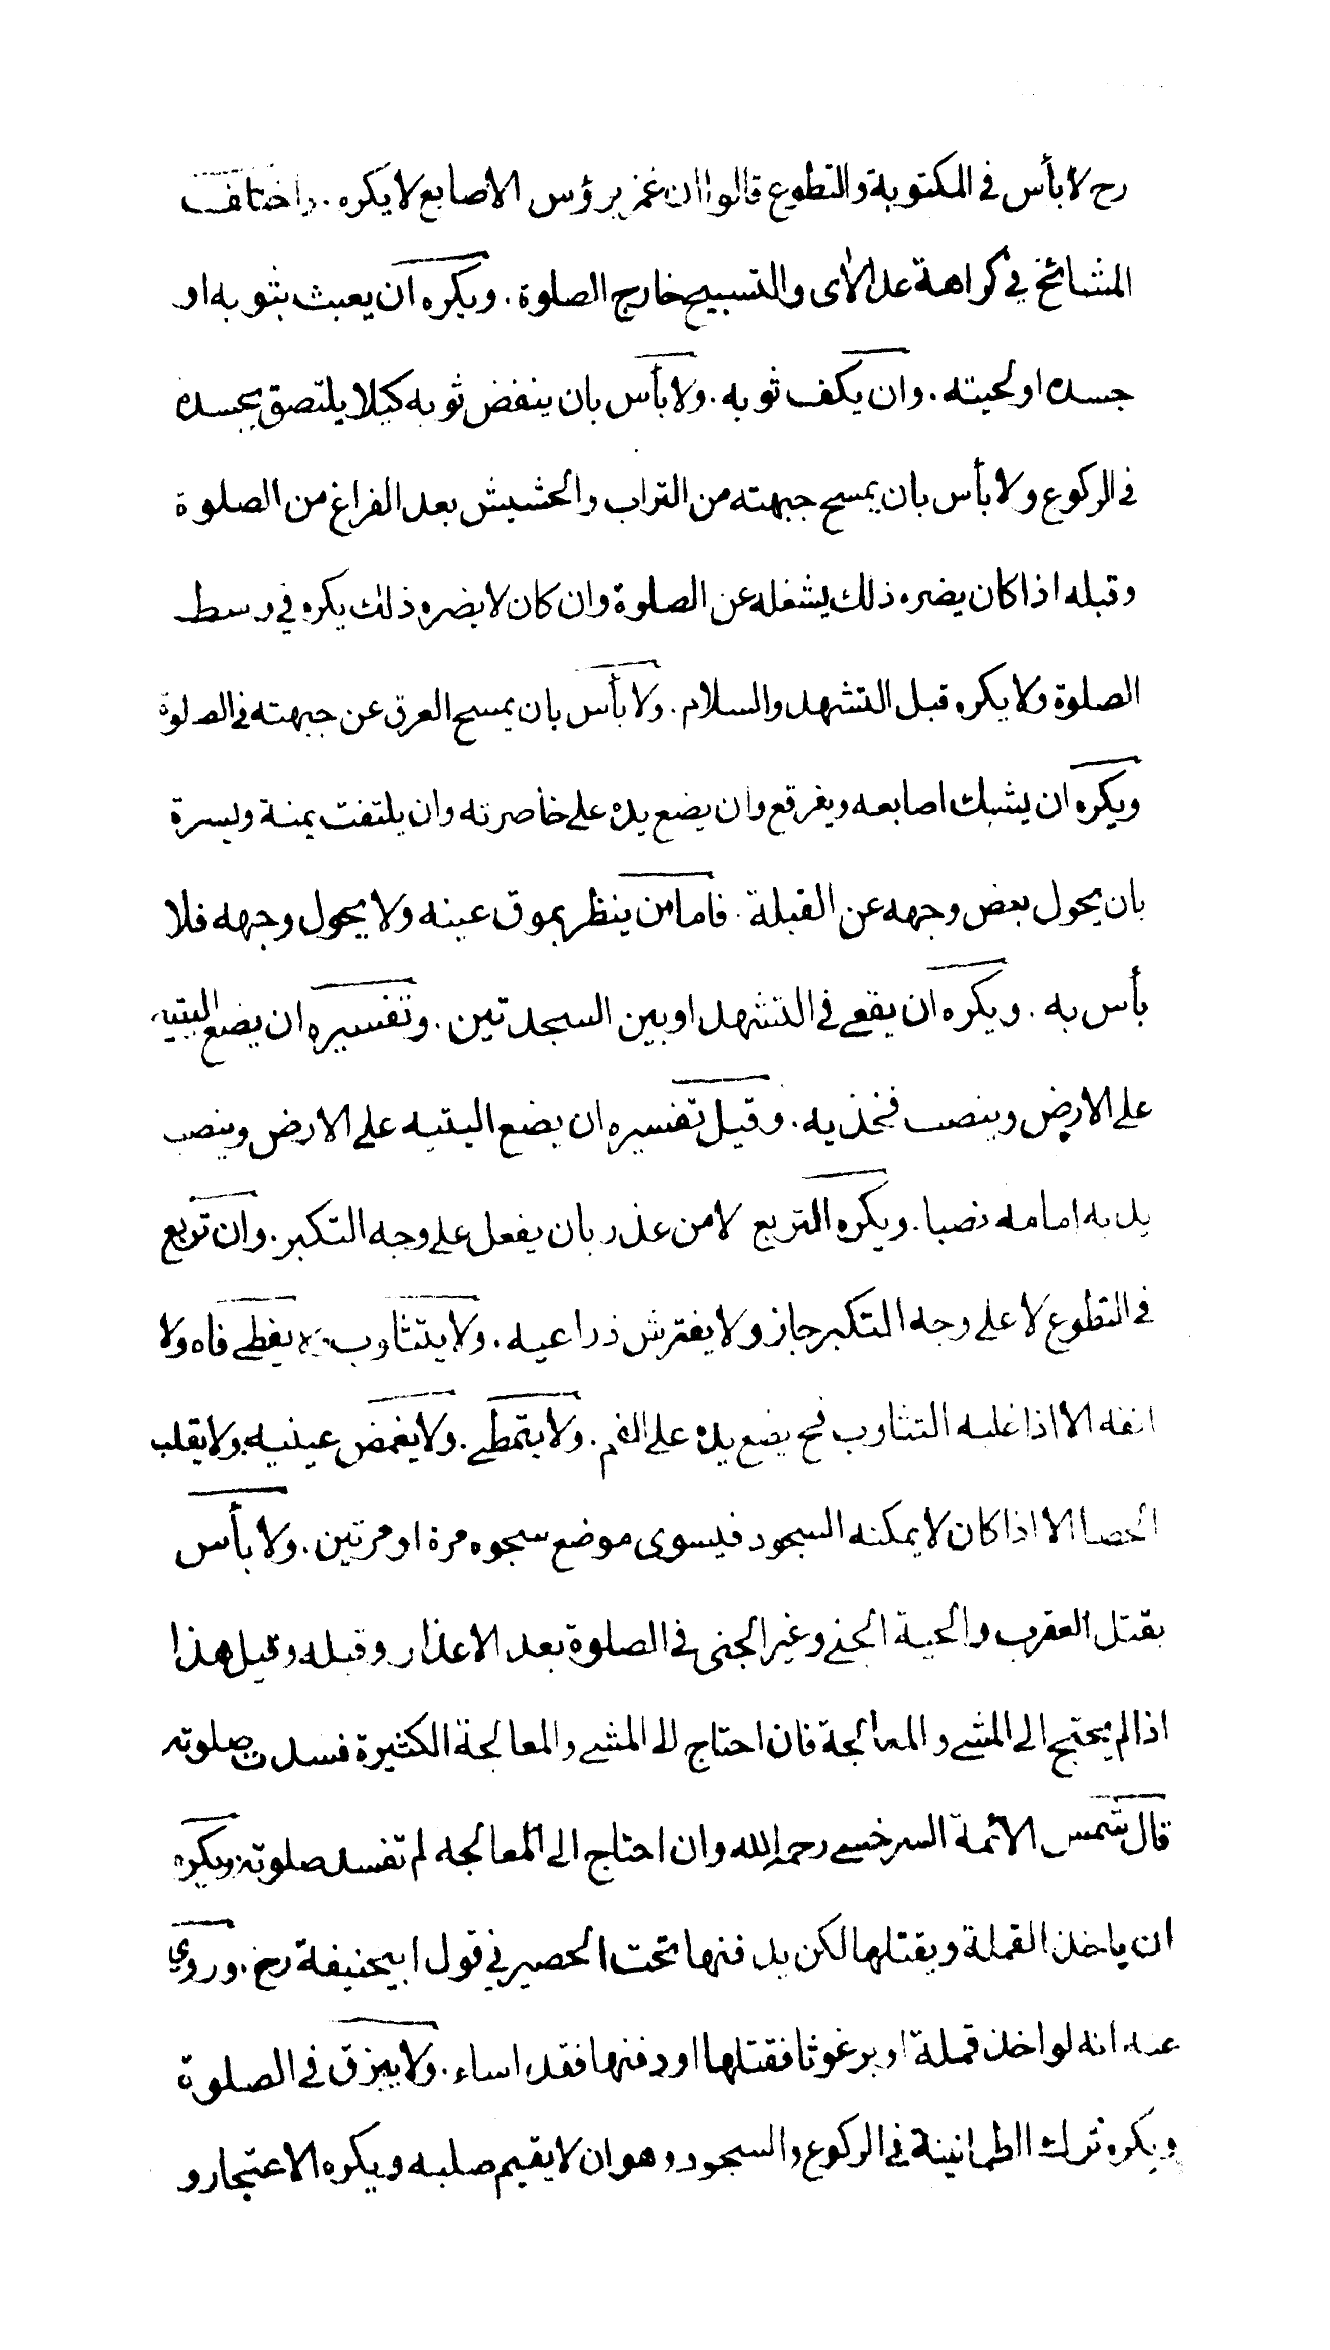 رح لا بأس في المكتوبة والتطوع قالوا ان غمز برؤس الاصابع لا يكره . واختلف
المشائخ في كراهة عد الآى والتسبيح خارج الصلوة . ويكره ان يعبث بثوبه او
جسده او لحيته . وان يكف ثوبه . ولا بأس بان ينفض ثوبه كيلا يلتصق بجسده
في الركوع ولا بأس بان يمسح جبهته من التراب والحشيش بعد الفراغ من الصلوة
وقبله اذا كان يضره ذلك يشغله عن الصلوة وان كان لا يضره ذلك يكره في وسط
الصلوة ولا يكره قبل التشهد والسلام . ولا بأس بان يمسح العرق عن جبهته في الصلوة
ويكره ان يشبك اصابعه ويفرقع وان يضع يده على خاصرته وان يلتفت يمنة ويسرة
بان يحول بعض وجهه عن القبلة . فاما من ينظر بموق عينه ولا يحول وجهه فلا
بأس به . ويكره ان يقعي في التشهد او بين السجدتين . وتفسيره ان يضع اليتيه
على الارض وينصب فخذيه . وقيل تفسيره ان يضع اليتيه على الارض وينصب
يديه امامه نصبا . ويكره التربع لا من عذر بان يفعل على وجه التكبر . وان تربع
في التطوع لا على وجه التكبر جاز ولا يفترش ذراعيه . ولا يتثاوب ولا يغطي فاه ولا
انفه الا اذا غلبه التثاوب فح يضع يده على الفم . ولا يتمطى . ولا يغمض عينيه ولا يقلب
الحصا الا اذا كان لا يمكنه السجود فيسوى موضع سجوه مرة او مرتين . ولا بأس
بقتل العقرب والحية الجني وغير الجنى في الصلوة بعد الاعذار وقبله وقيل هذا
اذا لم يحتج الى المشي والمعالجة فان احتاج الى المشي والمعالجة الكثيرة فسدت صلوته
قال شمس الائمة السرخسي رحمه الله وان احتاج الى المعالجه لم تفسد صلوته ويكره
ان ياخذ القملة ويقتلها لكن يدفنها تحت الحصير في قول ابيحنيفة رح . وروي
عنه انه لو اخذ قملة او برغوثا فقتلها او دفنها فقد اساء . ولا يبزق في الصلوة
ويكره ترك الطمانينة في الركوع والسجود وهو ان لا يقيم صلبه ويكره الاعتجار و